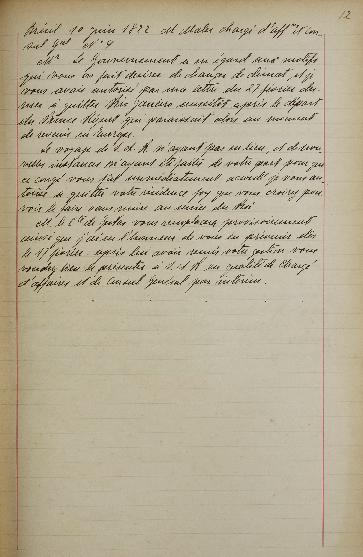 12
Brésil 10 juin 1822 Mr Maler chargé d'affres et con-
sul Gal No 9
Mr Le Gouvernement a eu égard aux motifs
qui vous ont fait désirer de changer de climat, et je
vous avais autorisé par ma lettre du 27 février der-
nier à quitter Rio Janeiro aussitôt après le départ
du Prince Régent que paraissait alors au moment
de revenir en Europe.
Le voyage de S. A. R. n'ayant pas eu lieu, et de nou-
velles instances m'ayant été faites de votre part pour que
ce congé vous fut immédiatement accordé je vous au-
torise à quitter votre résidence dès que vous croirez pou-
voir le faire sans nuire au service du Roi
M. le Cte de Gestas vous remplacera provisoirement
ainsi que j'ai eu l'honneur de vous en prévenir dès
le 27 février après lui avoir remis votre gestion vous
voudrez bien le présenter à S. A. R. en qualité de chargé
d'affaires et de consul général par intérim.